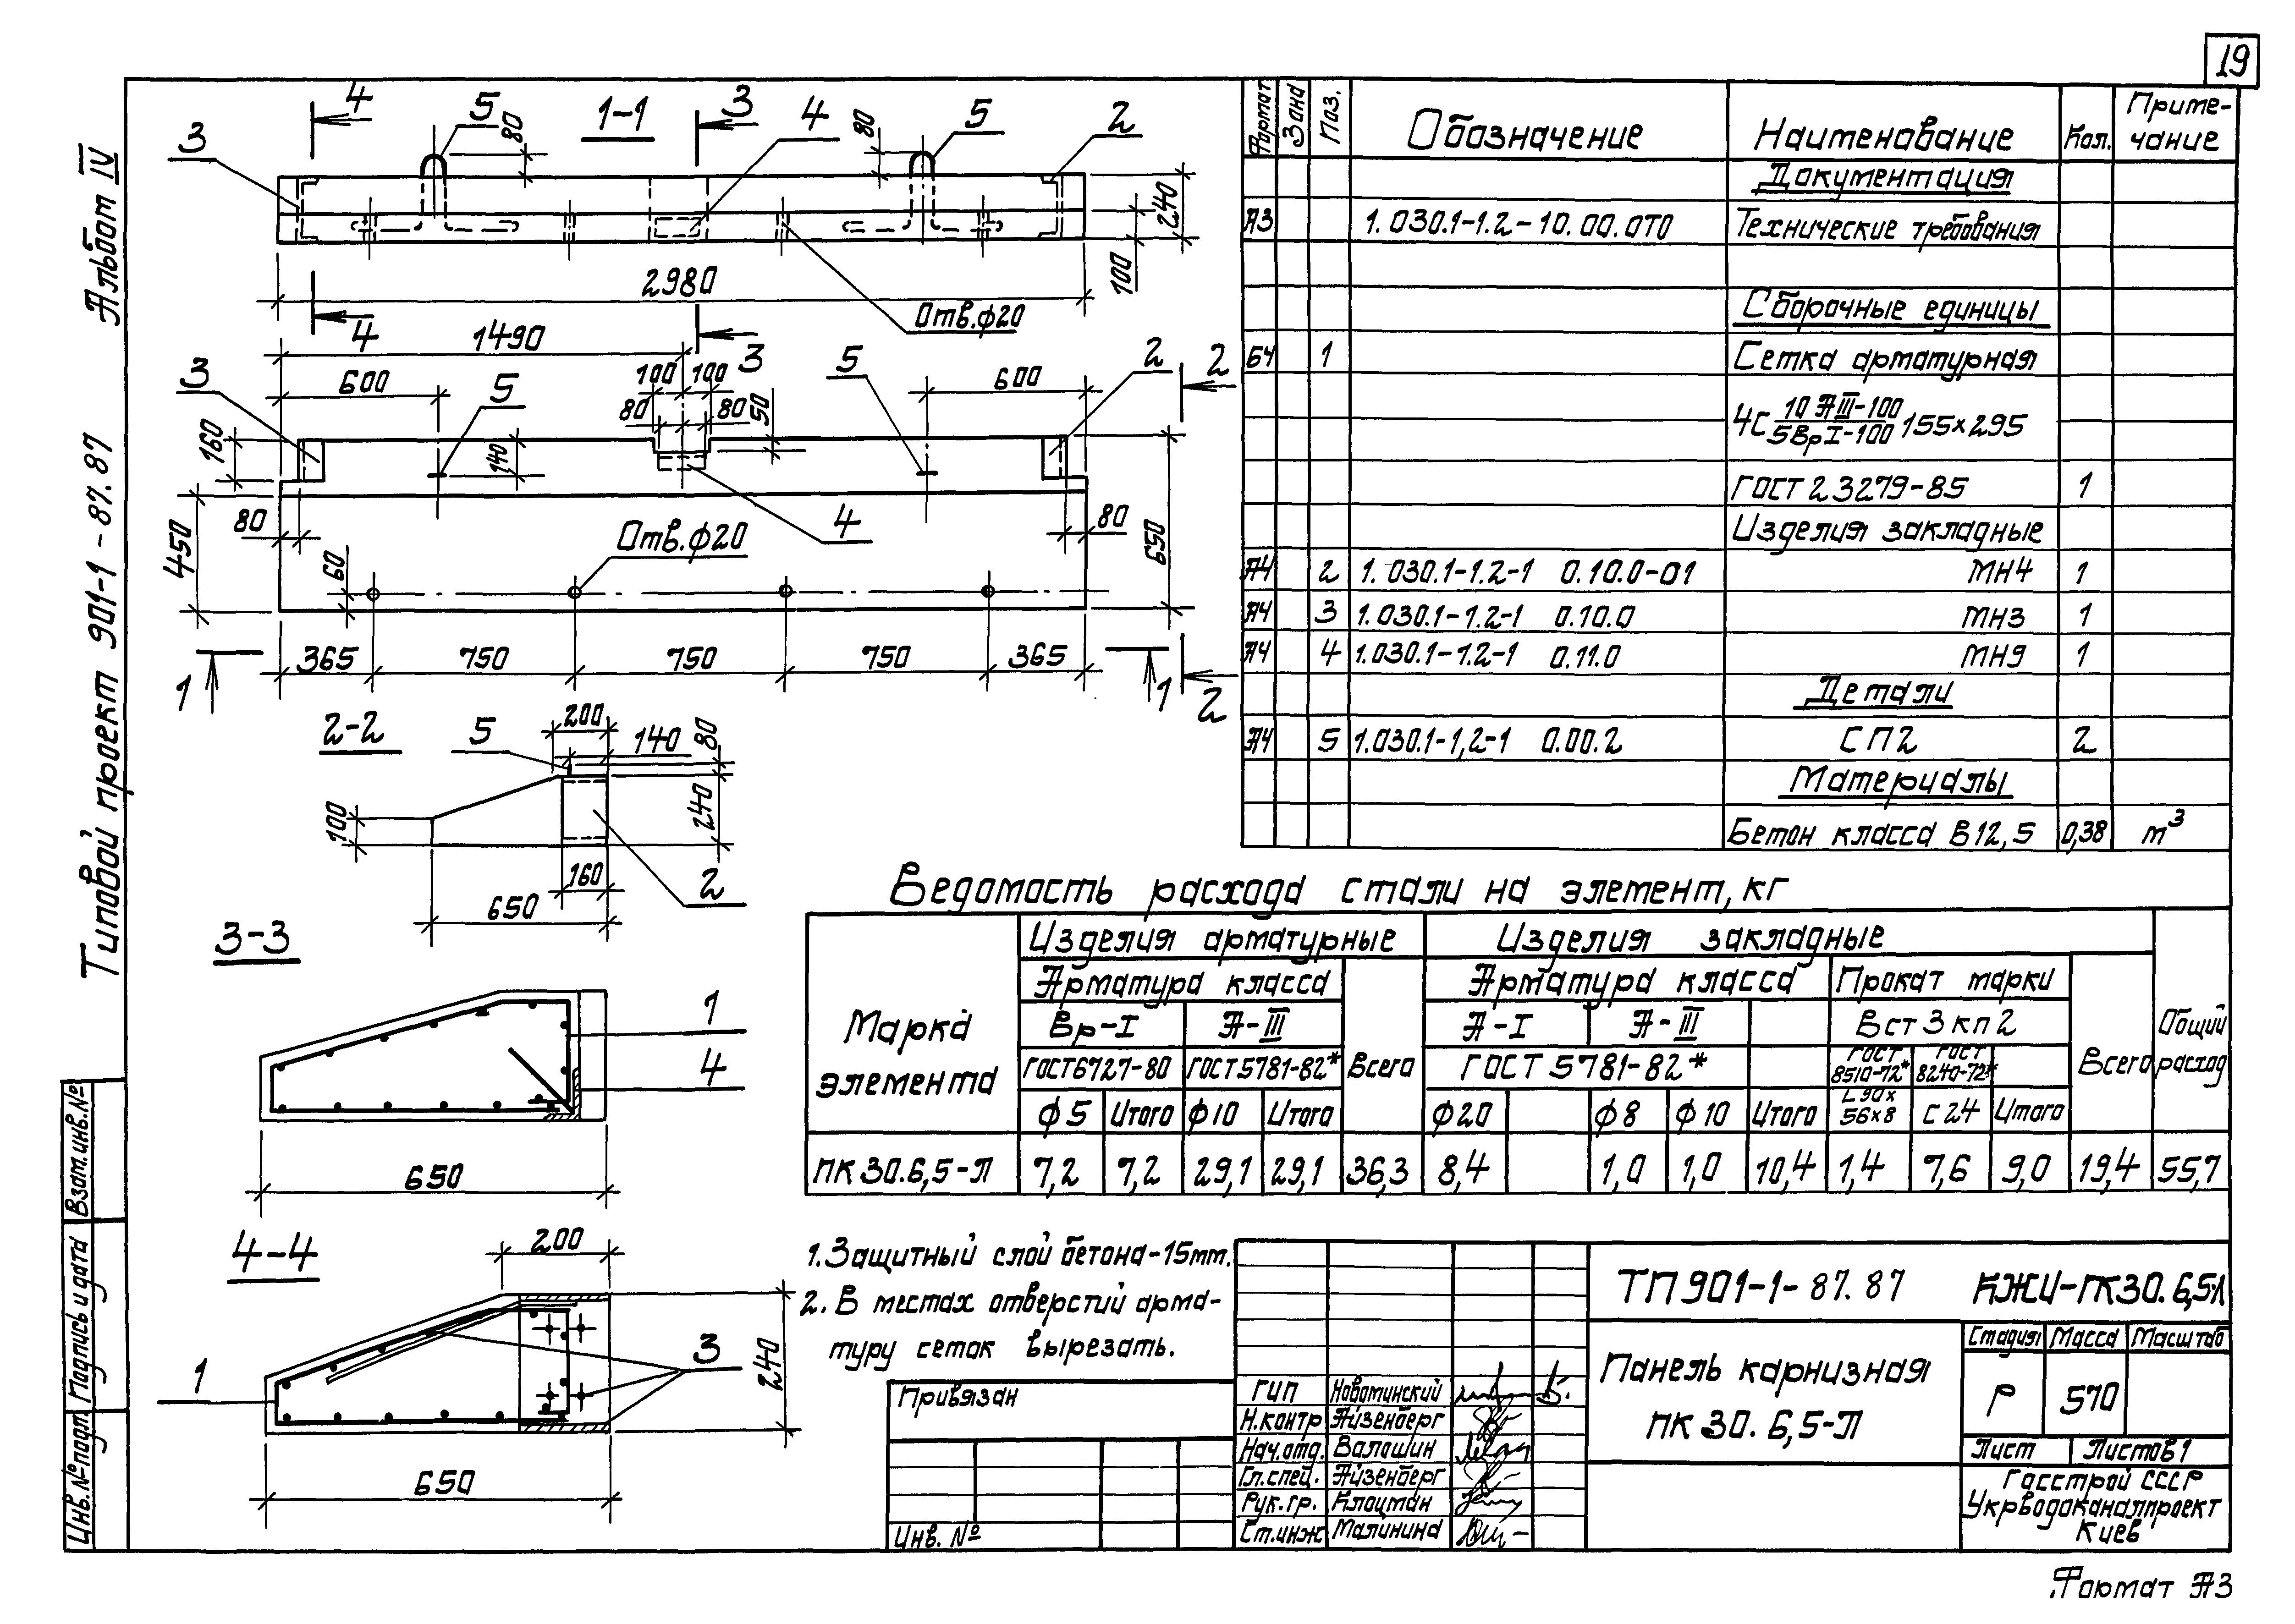 19
Типовой проект 901-1-87.87 Альбом IV
Взам.инв.№
Подпись и дата
Инв.№подл.
1-1
4 5 80 3 4 80 5 2
3
240
100
2980
Отв.ф20
4 3
1490
600 100 100 600
3 5 5 2 2
80 80 50
160 140
80 4 80
450 650
Отв.ф20
60
365 750 750 750 365
1 1 2
2-2
5 200 140 80
100 240
160
2
650
3-3
1
4
650
4-4
200
240
1 3
650
Формат Зона Поз. Обозначение Наименование Кол. Приме-
чание
Документация
А3 1.030.1-1.2-10.00.0ТО Технические требования
Сборочные единицы
БЧ 1 Сетка арматурная
4С 10 АIII-100 / 5ВрI-100 155×295
ГОСТ 23279-85 1
Изделия закладные
А4 2 1.030.1-1.2-1 0.10.0-01 МН4 1
А4 3 1.030.1-1.2-1 0.10.0 МН3 1
А4 4 1.030.1-1.2-1 0.11.0 МН9 1
Детали
А4 5 1.030.1-1,2-1 0.00.2 СП2 2
Материалы
Бетон класса В12,5 0,38 м³
Ведомость расхода стали на элемент, кг
Марка
элемента
Изделия арматурные Изделия закладные
Арматура класса Арматура класса Прокат марки
Вр-I А-III А-I А-III Вст3кп2
ГОСТ6727-80 ГОСТ5781-82* Всего ГОСТ 5781-82* ГОСТ
8510-72* ГОСТ
8240-72* Всего Общий
расход
ф5 Итого ф10 Итого ф20 ф8 ф10 Итого L90×
56×8 С24 Итого
ПК30.6,5-П 7,2 7,2 29,1 29,1 36,3 8,4 1,0 1,0 10,4 1,4 7,6 9,0 19,4 55,7
1. Защитный слой бетона-15мм.
2. В местах отверстий арма-
туру сеток вырезать.
Привязан
Инв. №
ГИП Новоминский
Н.контр Айзенберг
Нач.отд. Волошин
Гл.спец. Айзенберг
Рук.гр. Клоцман
Ст.инж Малинина
ТП901-1-87.87 КЖИ-ПК30.6,5-П
Панель карнизная
ПК30.6,5-П
Стадия Масса Масштаб
Р 570
Лист Листов 1
Госстрой СССР
Укрводоканалпроект
Киев
Формат А3